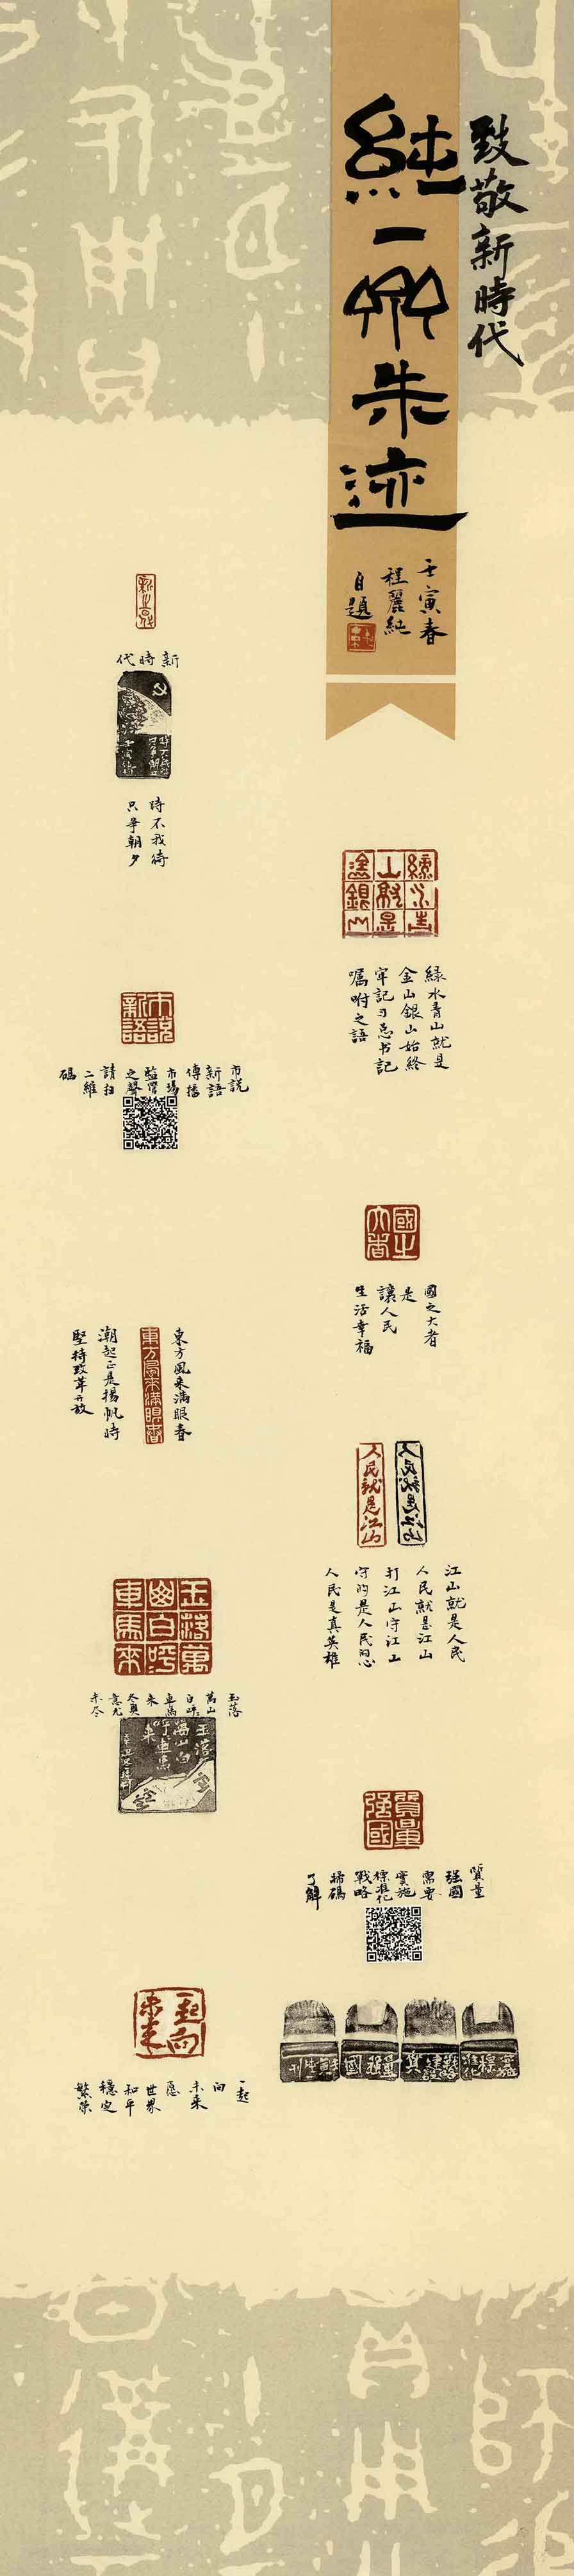 致敬新時代
純一齋朱迹
壬寅春
程麗純
自題
綠水青山就是
金山銀山始終
牢記习总书記
嘱咐之語
國之大者
國之大者
是
讓人民
生活幸福
人民就是江山
人民就是江山
江山就是人民
人民就是江山
打江山守江山
守的是人民的心
人民是真英雄
質量
强國
質量
强國
需要
實施
標准化
戰略
掃碼
了解
新時代
時不我待
只争朝夕
市説
新語
市説
新語
傳播
市場
監管
之聲
請扫
二維
碼
東方風来满眼春
東方風来满眼春
潮起正是揚帆時
堅持改革开放
玉落萬
山白呼
車馬来
玉落
萬山
白呼
車馬
来
冬奥
意尤
未尽
玉落
萬山白
呼車馬
来
一起向
未来
一起
向
未来
愿
世界
和平
穩定
繁荣